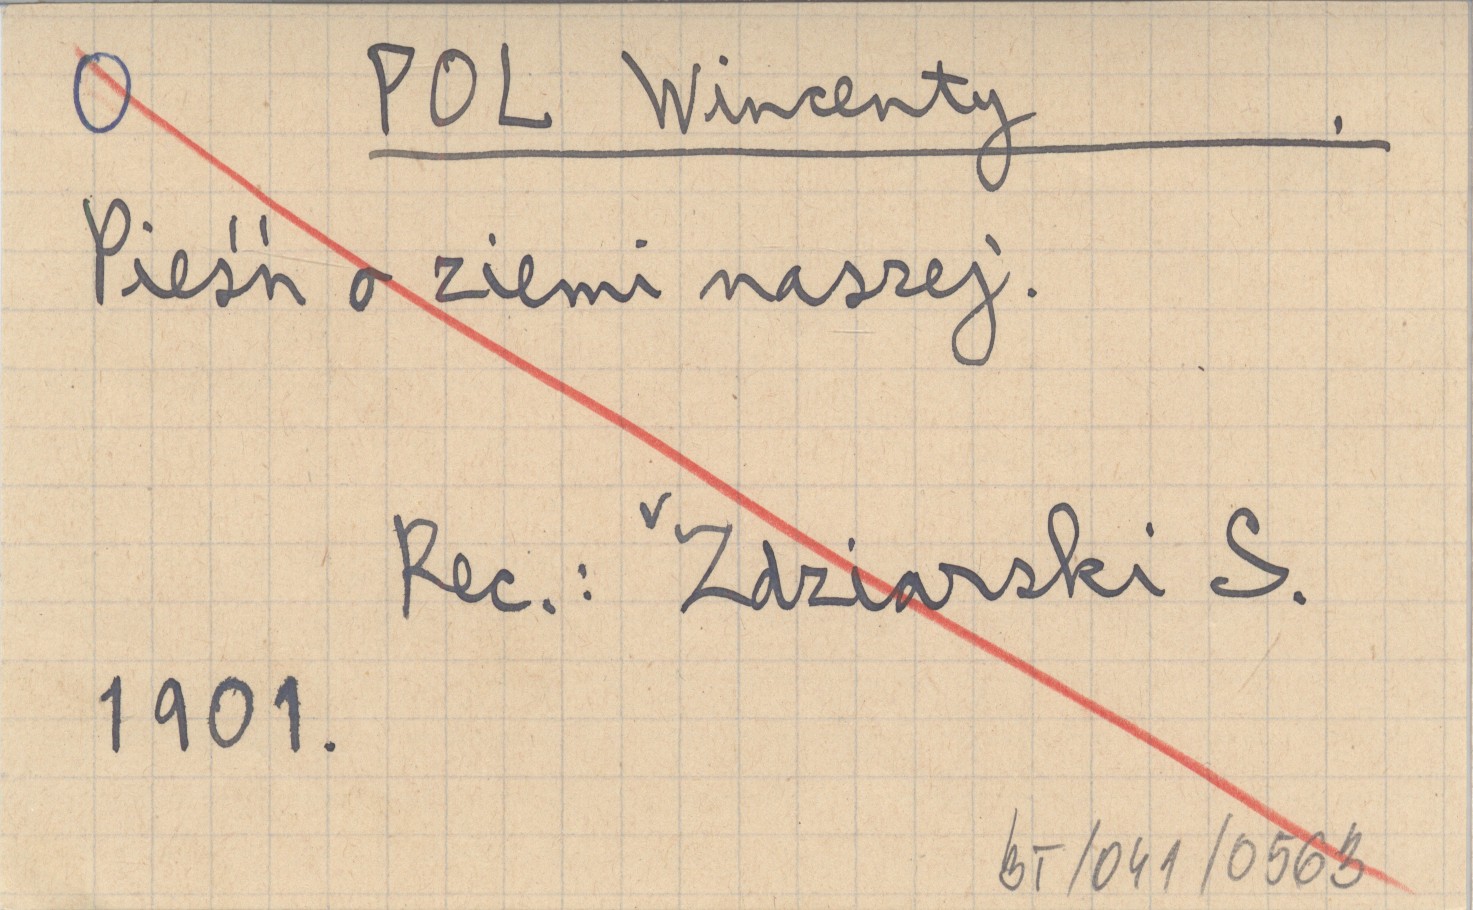 O POL Wincenty .
Pieśń o ziemi naszej.
Rec.: √ Zdziarski S.
1901.
BT/041/0563